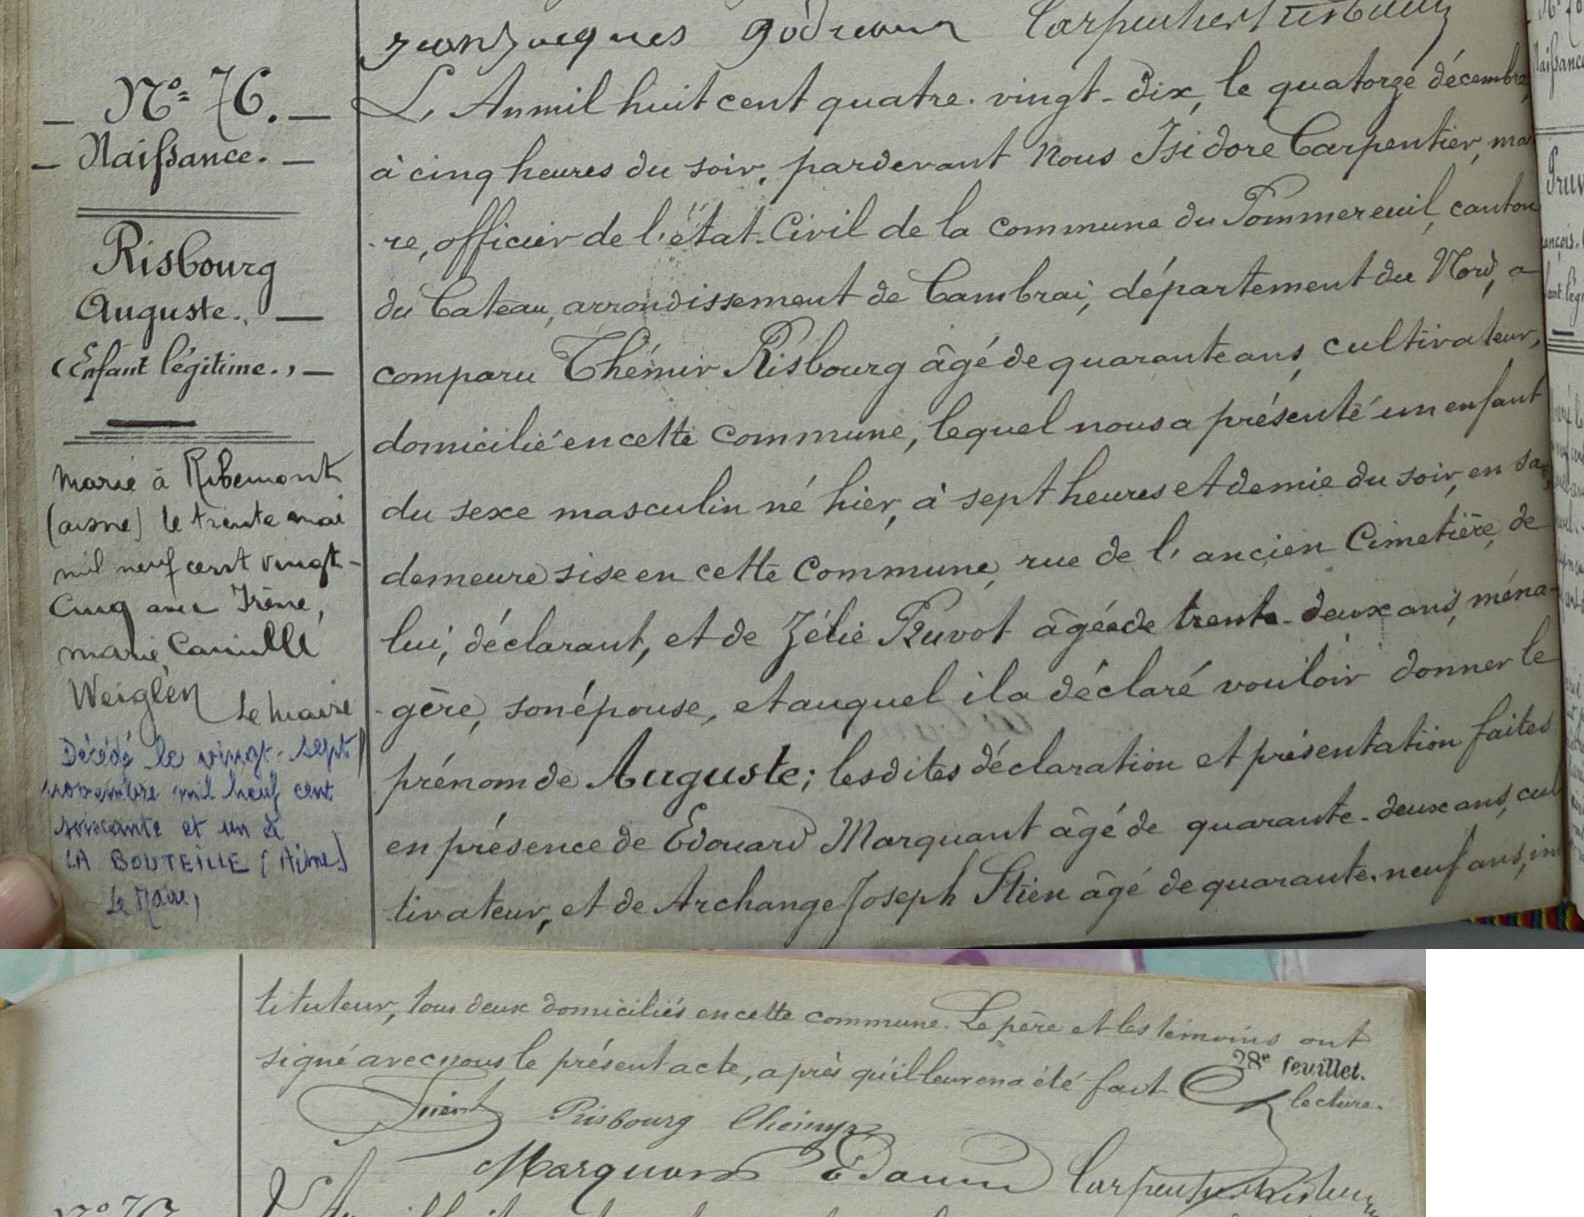 jean jacques godreaux Carpentier Risbourg
N° 76.
Naissance.
Risbourg
Auguste.
(Enfant légitime.)
Marié à Ribemont
(aisne) le trente mai
mil neuf cent vingt-
cinq avec Irène,
marie, Camille
Weiglen
Le Maire
Décédé le vingt-sept
novembre mil neuf cent
soixante et un à
LA BOUTEILLE (Aisne)
Le Maire,
L'An mil huit cent quatre-vingt-dix, le quatorze décembre,
à cinq heures du soir, pardevant Nous Isidore Carpentier, mai
-re, officier de l'état-Civil de la commune du Pommereuil, canton
du Cateau, arrondissement de Cambrai, département du Nord, a
comparu Thémir Risbourg âgé de quarante ans, cultivateur,
domicilié en cette commune, lequel nous a présenté un enfant
du sexe masculin né hier, à sept heures et demie du soir, en sa
demeure sise en cette commune, rue de l'ancien Cimetière, de
lui, déclarant, et de Zélie Pruvot âgée de trente-deux ans, ména-
gère, son épouse, et auquel il a déclaré vouloir donner le
prénom de Auguste; lesdites déclaration et présentation faites
en présence de Edouard Marquant âgé de quarante-deux ans, cul
tivateur, et de Archange Joseph Stien âgé de quarante-neuf ans, ins
tituteur, tous deux domiciliés en cette commune. Le père et les témoins ont
signé avec nous le présent acte, après qu'il leur en a été fait lecture.
28e feuillet.
Risbourg Thémyr
Marquant Edouard Carpentier Risbourg